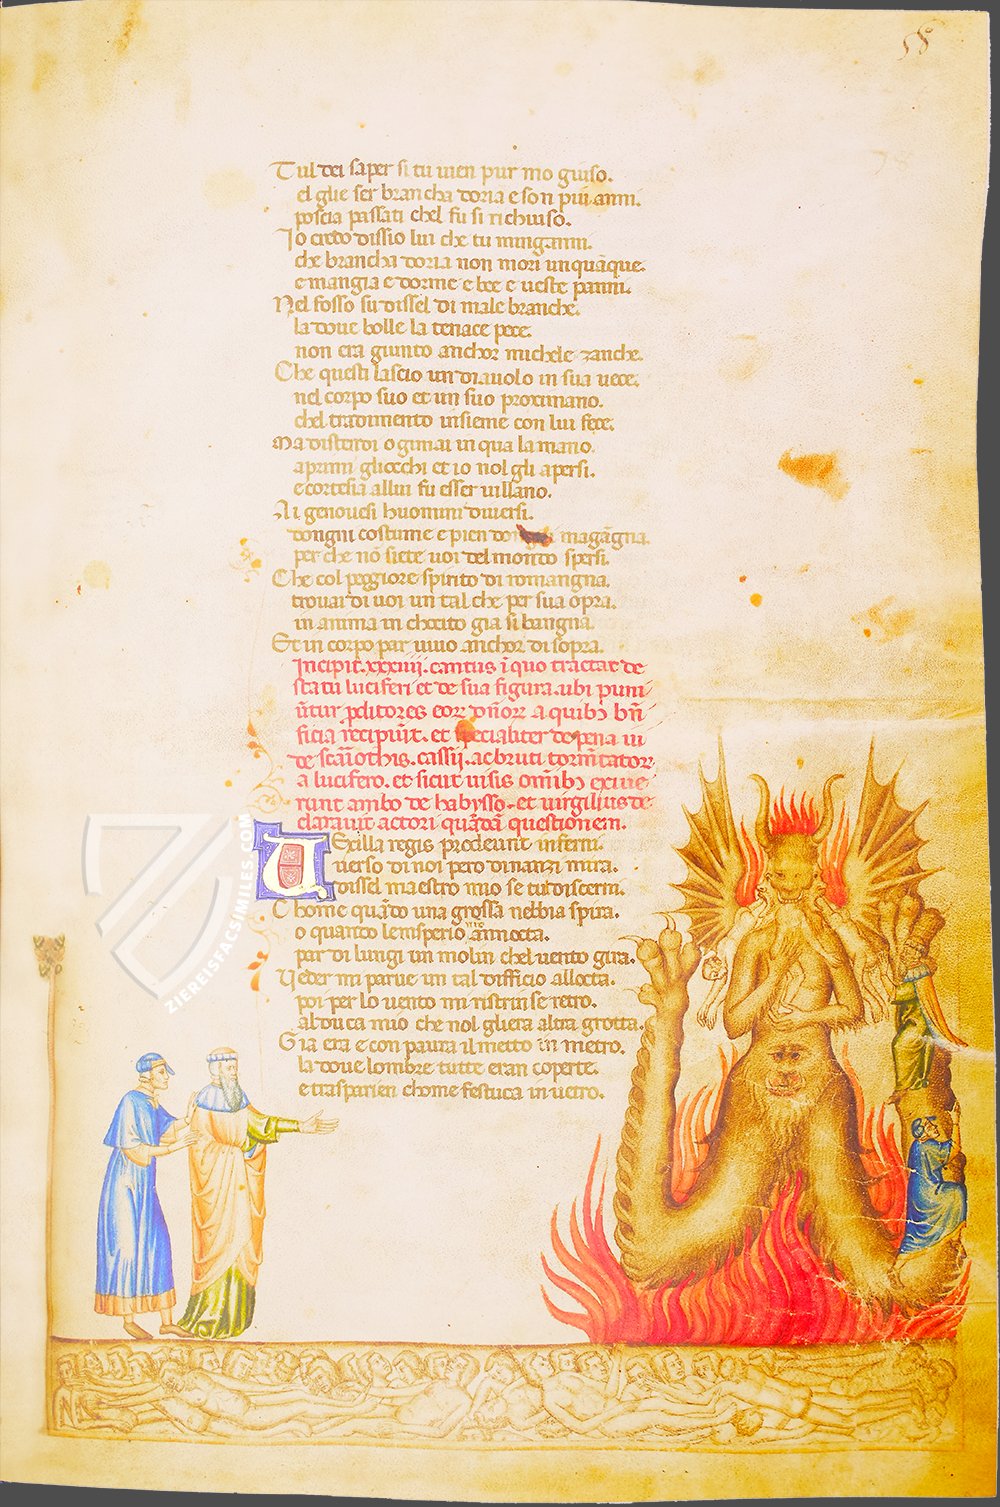 58
Tul dei saper si tu uien pur mo giuso.
el glie ser brancha doria e son piu anni.
poscia passati chel fu si richiuso.
Io credo dissio lui che tu minganni.
che brancha doria non mori unquãque.
e mangia e dorme e bee e ueste panni.
Nel fosso su dissel di male branche.
la doue bolle la tenace pece.
non era giunto anchor michele zanche.
Che questi lascio un diauolo in sua uece.
nel corpo suo et un suo proximano.
chel tradimento insieme con lui fece.
Ma distendi ogimai in qua la mano.
aprimi gliocchi et io nol gli apersi.
e cortesia allui fu esser uillano.
Ai genouesi huomini diuersi.
dongni costume e pien magãgna.
per che nõ siete uoi del mondo spersi.
Che col peggiore spirito di romangna.
trouai di uoi un tal che per sua opra.
in anima in chocito gia si bangna.
Et in corpo par uiuo anchor di sopra.
Incipit .xxxiiij. cantus ĩ quo tractat de
statu luciferi et de sua figura. ubi puni
ũtur pditores eor dñor a quibꝫ bñ
ficia recipiũt. et specialiter de pena iu
de scariothis. cassii. ac bruti tormẽtator
a lucifero. et sicut uisis omĩbꝫ exiue
runt ambo de habysso. et uirgilius de
clarauit actori quãdã questionem.
Uexilla regis prodeunt inferni.
uerso di noi pero dinanzi mira.
dissel maestro mio se tu discerni.
Chome quãdo una grossa nebbia spira.
o quando lemsperio ñr̃o annocta.
par di lungi un molin chel uento gira.
Ueder mi parue un tal dificio allocta.
poi per lo uento mi ristrinse retro.
al duca mio che nol gliera altra grotta.
Gia era e con paura il metto in metro.
la doue lombre tutte eran coperte.
e trasparien chome festuca in uetro.
ZIEREISFACSIMILES.COM